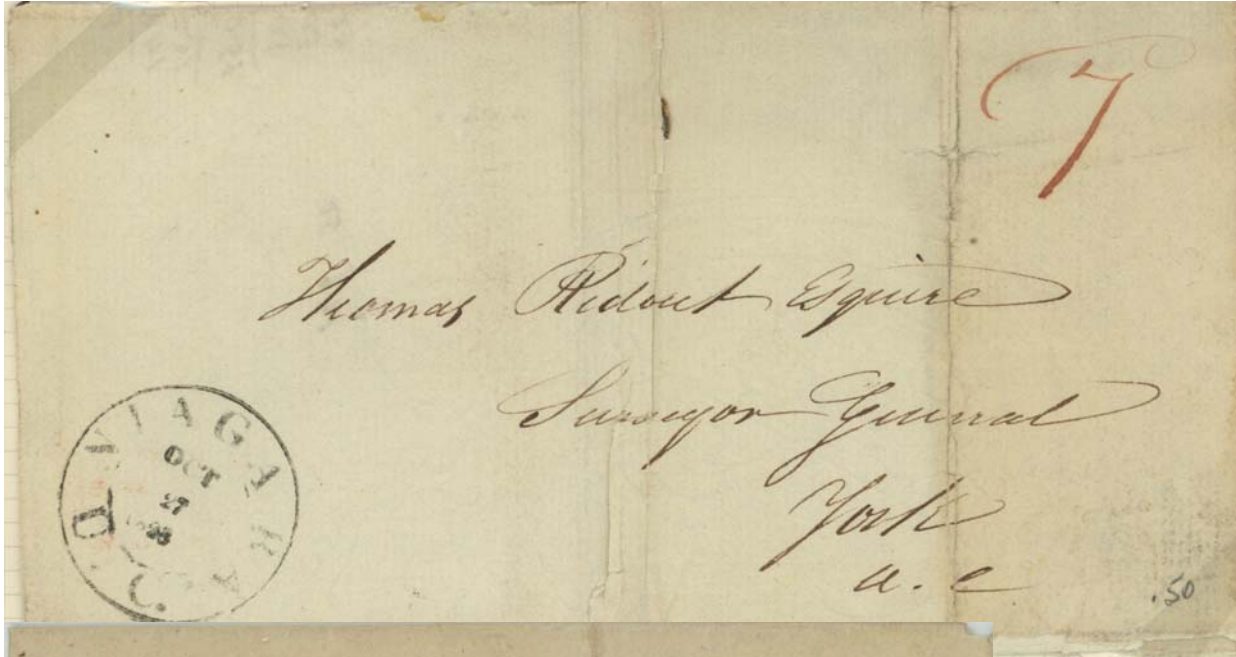 7
Thomas Ridout Esquire
Surveyor General
York
u. c
NIAGARA
OCT
27
U.C.
.50